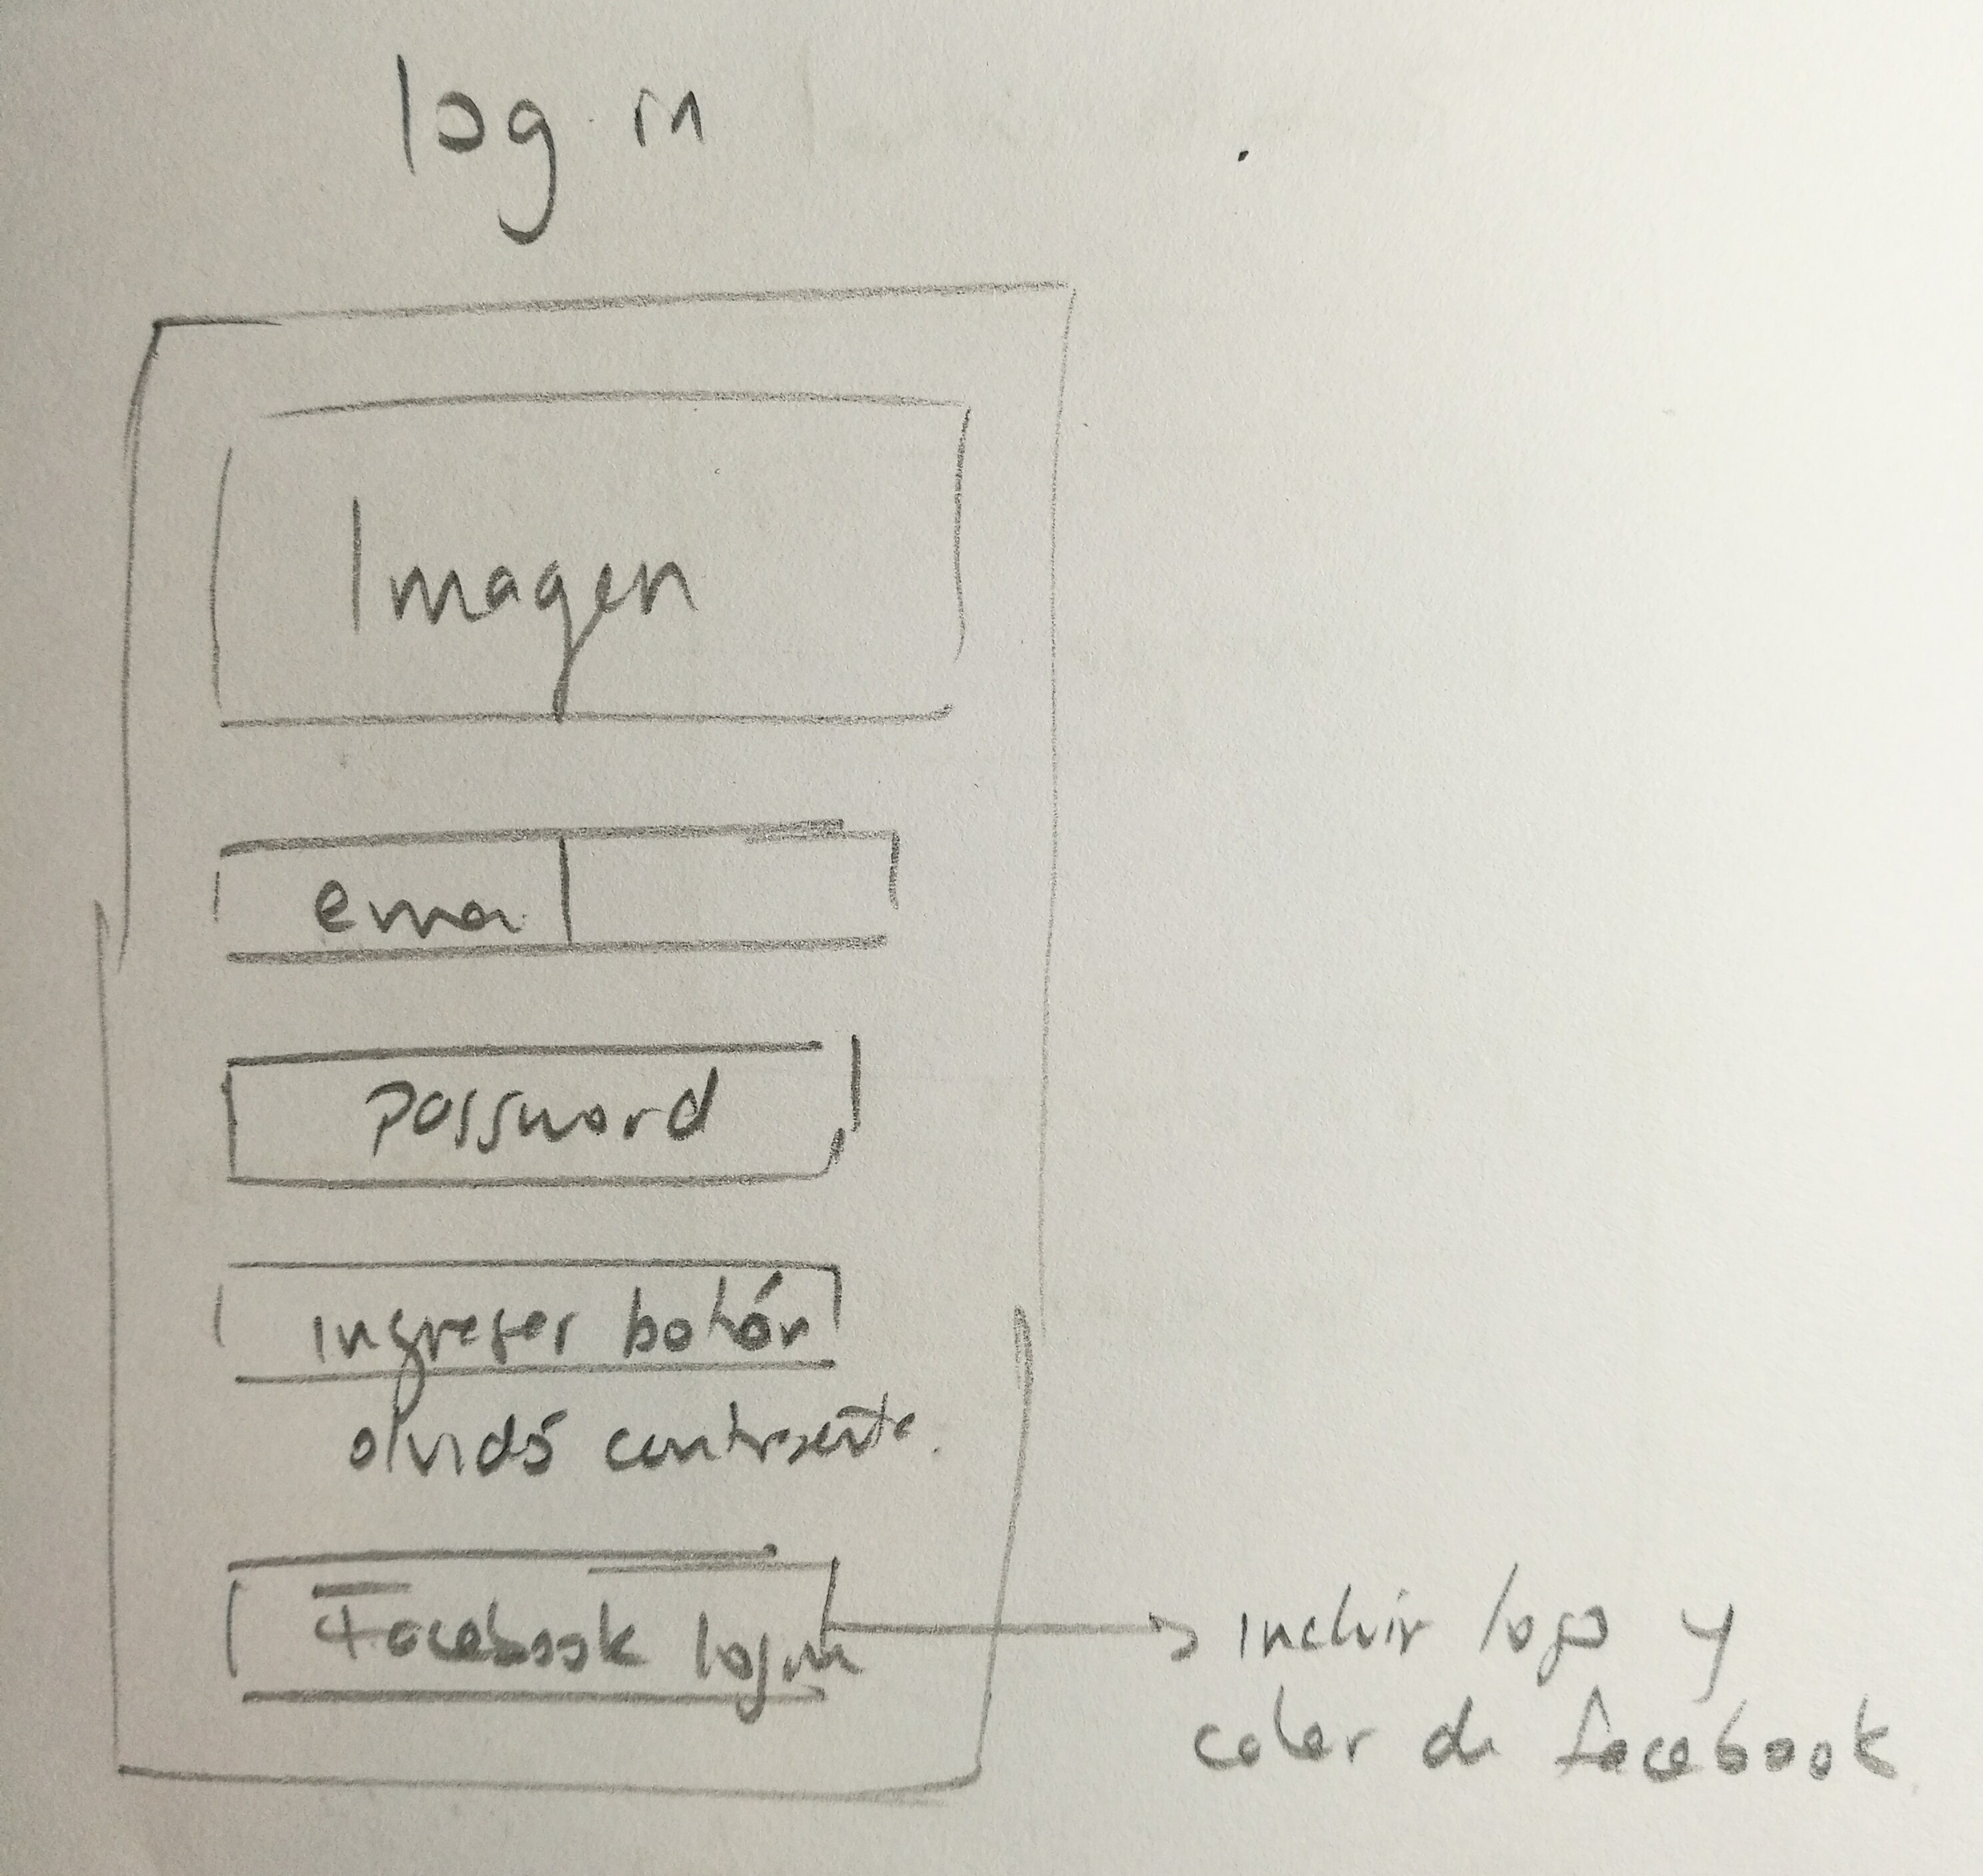 log in
Imagen
email
password
ingresar botón
olvidó contraseña.
Facebook login
incluir logo y
color de facebook